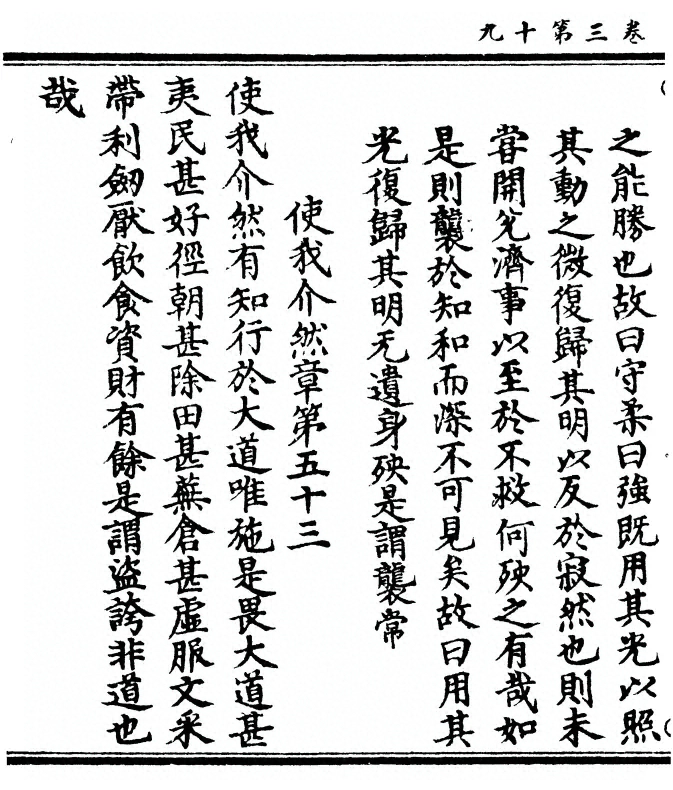 卷三第十九
之能勝也故曰守柔曰強既用其光以照
其動之微復歸其明以反於寂然也則未
嘗開兌濟事以至於不救何殃之有哉如
是則襲於知和而深不可見矣故曰用其
光復歸其明无遺身殃是謂襲常
使我介然章第五十三
使我介然有知行於大道唯施是畏大道甚
夷民甚好徑朝甚除田甚蕪倉甚虛服文采
帶利劒厭飲食資財有餘是謂盜誇非道也
哉